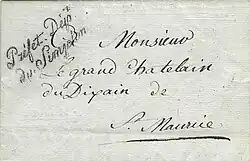 Préfet. Dép.t
du Simplon
Monsieur
Le grand Chatelain
du Dixain de
St. Maurice